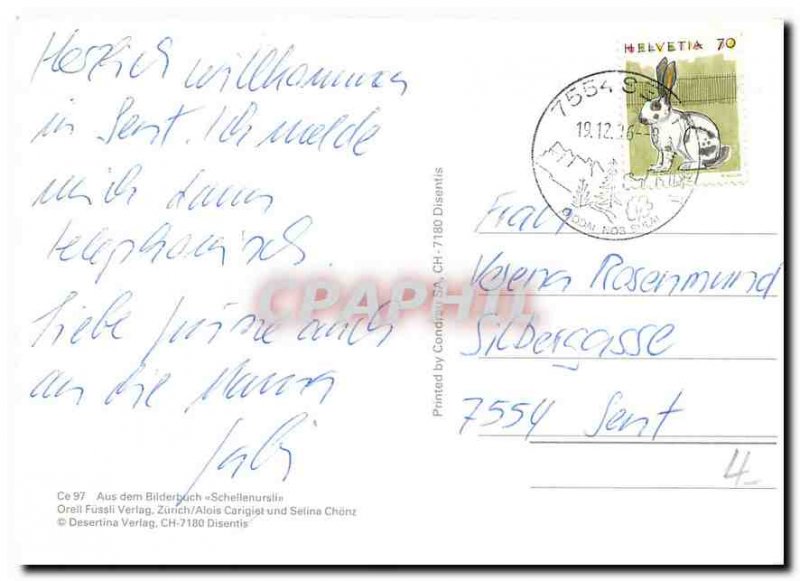 Herzlich willkommen
in Sent. Ich melde
mich dann
telephonisch.
Liebe Grüsse auch
an die Mama
Gabi
Ce 97 Aus dem Bilderbuch «Schellenursli»
Orell Füssli Verlag, Zürich/Alois Carigiet und Selina Chönz
© Desertina Verlag, CH-7180 Disentis
Printed by Condrau SA, CH-7180 Disentis
HELVETIA 70
7554 S
19.12.
CPAPHIL
Rosenmund
Silbergasse
7554 Sent
4.-